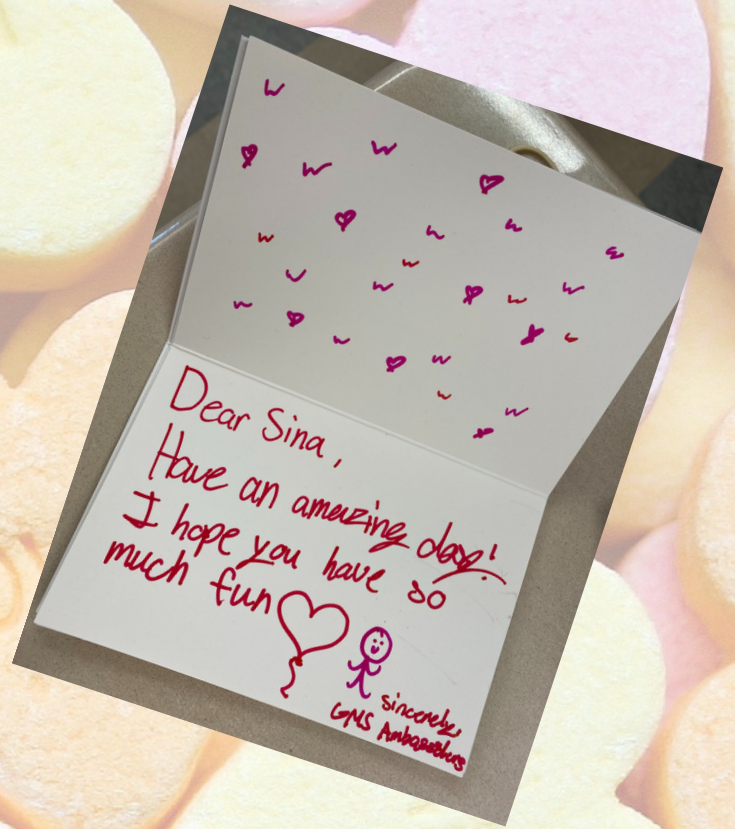 Dear Sina,
Have an amazing day!
I hope you have so
much fun
sincerely,
GMS Ambassadors